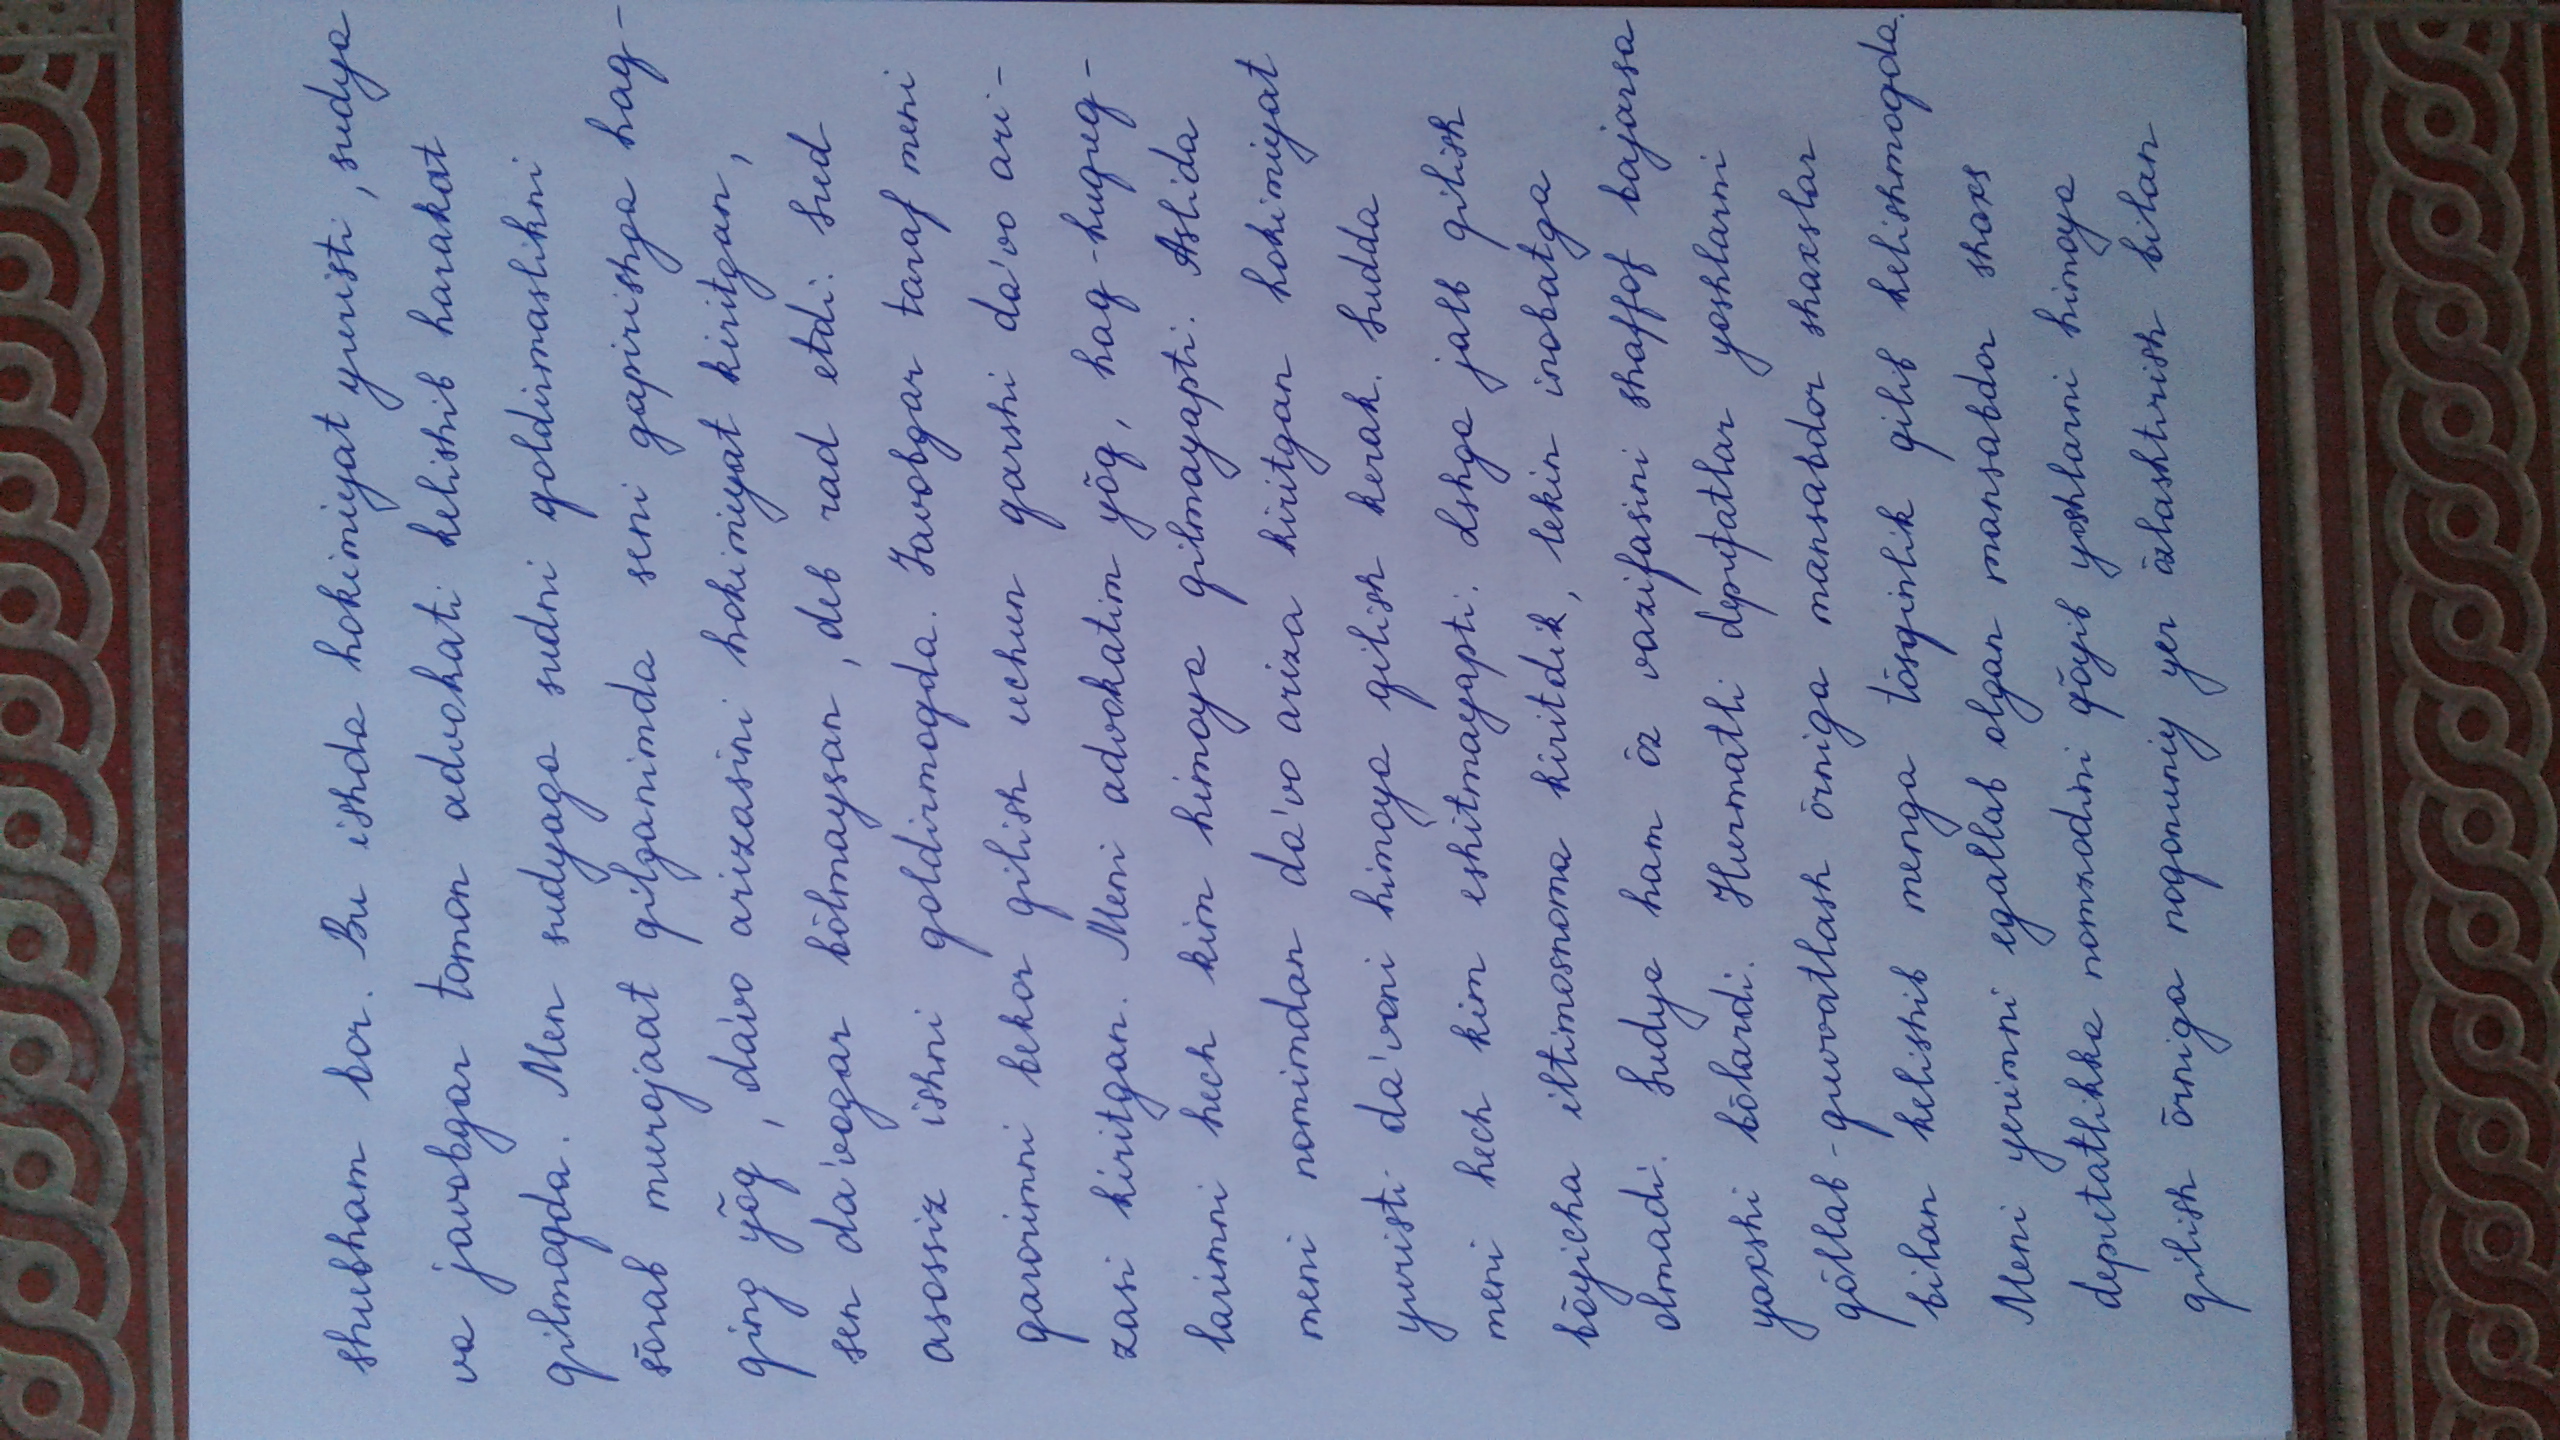 shubham bor. Bu ishda hokimiyat yuristi, sudya
va javobgar tomon advokati kelishib harakat
qilmoqda. Men sudyaga sudni qoldirmaslikni
sõrab murojaat qilganimda seni gapirishga haq-
qing yõq, da'vo arizasini hokimiyat kiritgan,
sen da'vogar bõlmaysan, deb rad etdi. Sud
asossiz ishni qoldirmoqda. Javobgar taraf meni
qarorimni bekor qilish uchun qarshi da'vo ari-
zasi kiritgan. Meni advokatim yõq, haq-huquq-
larimni hech kim himoya qilmayapti. Aslida
meni nomimdan da'vo ariza kiritgan hokimiyat
yuristi da'voni himoya qilish kerak. Sudda
meni hech kim eshitmayapti. Ishga jalb qilish
bõyicha iltimosnoma kiritdik, lekin inobatga
olmadi. Sudya ham õz vazifasini shaffof bajarsa
yaxshi bõlardi. Hurmatli deputatlar yoshlarni
qõllab-quvvatlash õrniga mansabdor shaxslar
bilan kelishib menga tõsqinlik qilib kelishmoqda.
Meni yerimni egallab olgan mansabdor shaxs
deputatlikka nomzodini qõyib yoshlarni himoya
qilish õrniga noqonuniy yer õzlashtirish bilan